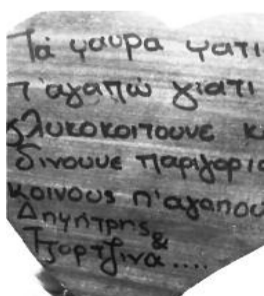 Τά μαυρα ματι
τ'αγαπώ γιατι
γλυκοκοιτουνε κ
δινουνε παριγορια
κοινους π'αγαπου
Δημήτρης
&
Τζορτζινα....